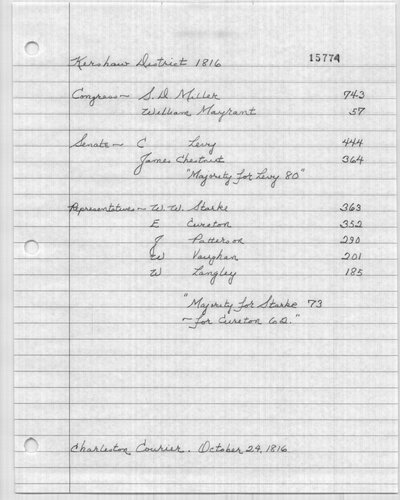 Kershaw District 1816
15774
Congress - S. D. Miller 743
William Mayrant 57
Senate - C Levy 444
James Chestnut 364
"Majority for Levy 80"
Representatives - W. W. Starke 363
E Cureton 352
J Patterson 290
W Vaughan 201
W Langley 185
"Majority for Starke 73
- for Cureton 62."
Charleston Courier. October 24, 1816